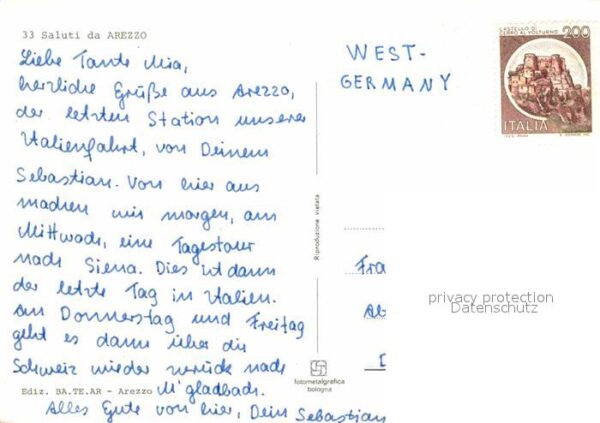 33 Saluti da AREZZO
Liebe Tante Mia,
herzliche Grüße aus Arezzo,
der letzten Station unserer
Italienfahrt, von Deinem
Sebastian. Von hier aus
machen wir morgen, am
Mittwoch, eine Tagestour
nach Siena. Dies ist dann
der letzte Tag in Italien.
Am Donnerstag und Freitag
geht es dann über die
Schweiz wieder zurück nach
M'gladbach.
Ediz. BA.TE.AR - Arezzo
Alles Gute von hier, Dein Sebastian
Riproduzione vietata
fotometalgrafica
bologna
WEST-
GERMANY
CASTELLO DI
CERRO AL VOLTURNO
200
ITALIA
Fra
privacy protection
Datenschutz